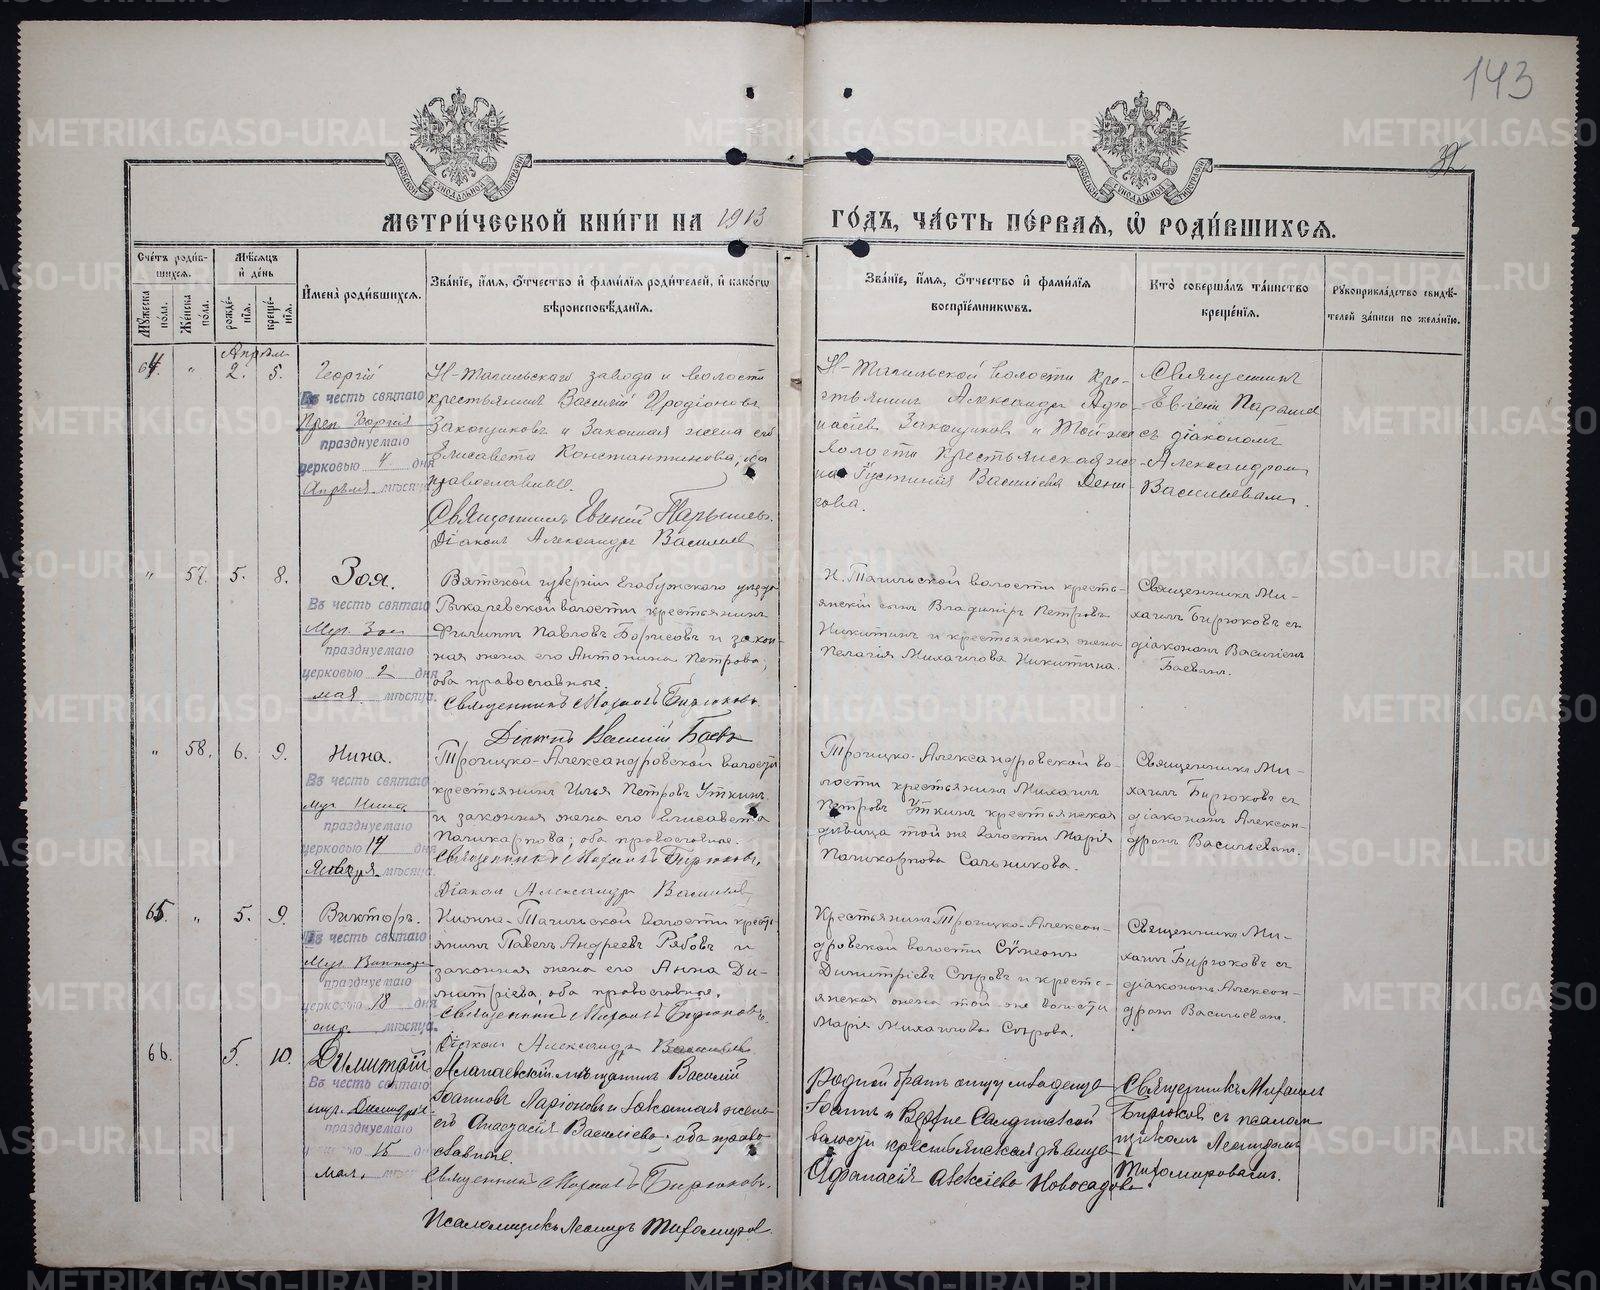 143
МЕТРИ́ЧЕСКОЙ КНИ́ГИ НА 1913 ГО́ДЪ, ЧА́СТЬ ПЕ́РВАЯ, Ѡ҆ РОДИ́ВШИХСЯ.
Сче́тъ роди́вшихся.
Мꙋ́жеска по́ла.
Же́нска по́ла.
Мѣ́сяцъ и҆ де́нь
рожде́нїя.
креще́нїя.
И҆мена̀ роди́вшихся.
Зва́нїе, и҆́мя, ѻ҆́тчество и҆ фами́лїя роди́телей, и҆ како́гѡ
вѣроисповѣ́данїя.
Зва́нїе, и҆́мя, ѻ҆́тчество и҆ фами́лїя
воспрїе́мникѡвъ.
Кто̀ соверша́лъ та́инство
креще́нїя.
Рꙋкоприкла́дство свидѣ́-
телей за́писи по жела́нїю.
Апрѣль
64. " 2. 5.
Георгій
Въ честь святаго
Преп. Георгія
празднуемаго
церковью 4 дня
Апрѣля мѣсяца
Н-Тагильскаго завода и волости
крестьянинъ Василій Иродіоновъ
Законная жена его
Елисавета Константинова, оба
православные.
Священникъ Евгеній
Діаконъ Александръ Васильевъ
Н-Тагильской волости кре-
стьянинъ Александръ
волости крестьянская
Василіева Дени-
сова.
Священникъ
Евгеній
съ діакономъ
Александромъ
Васильевымъ.
" 57. 5. 8.
Зоя.
Въ честь святаго
Муч. Зои
празднуемаго
церковью 2 дня
мая мѣсяца.
Вятской губерніи Елабужскаго уѣзда
волости крестьянинъ
Филиппъ Павловъ Борисовъ и закон-
ная жена его Антонина Петрова,
оба православные.
Священникъ Михаилъ Бирюковъ.
Діаконъ Василій Баевъ
Н. Тагильской волости кресть-
янскій сынъ Владиміръ Петровъ
Никитинъ и крестьянская жена
Пелагія Михаилова Никитина.
Священникъ Ми-
хаилъ Бирюковъ съ
діакономъ Василіемъ
Баевымъ.
" 58. 6. 9.
Нина.
Въ честь святаго
муч Нина
празднуемаго
церковью 14 дня
Января мѣсяца.
Троицко-Александровской волости
крестьянинъ Илья Петровъ Уткинъ
и законная жена его Елисавета
Поликарпова; оба православные.
Священникъ Михаилъ Бирюковъ.
Діаконъ Александръ Васильевъ
Троицко-Александровской во-
лости крестьянинъ Михаилъ
Петровъ Уткинъ крестьянская
дѣвица той же волости Марія
Поликарпова Сальникова.
Священникъ Ми-
хаилъ Бирюковъ съ
діакономъ Алексан-
дромъ Васильевымъ.
65. " 5. 9.
Викторъ.
Въ честь святаго
Муч. Виктора
празднуемаго
церковью 18 дня
апр. мѣсяца.
Нижне-Тагильской волости кресть-
янинъ Павелъ Андреевъ Рябовъ и
законная жена его Анна Ди-
митріева, оба православные.
Священникъ Михаилъ Бирюковъ.
Діаконъ Александръ Васильевъ
Крестьянинъ Троицко-Алексан-
дровской волости Сѵмеонъ
Димитріевъ Сѣровъ и кресть-
янская жена той же волости
Марія Михаилова Сѣрова.
Священникъ Ми-
хаилъ Бирюковъ съ
діакономъ Алексан-
дромъ Васильевымъ.
66. 5. 10.
Димитрій
Въ честь святаго
празднуемаго
церковью 15 дня
мая. мѣсяца
Алапаевскій мѣщанинъ Василій
Іоанновъ Ларіоновъ и законная жена
его Анастасія Василіева, оба право-
славные.
Священникъ Михаилъ Бирюковъ.
Псаломщикъ Леонидъ Тихомировъ.
Родной братъ отцу младенца
Іоаннъ и Верхне Салдинской
волости крестьянская дѣвица
Афанасія Алексіева Новосадова
Священникъ Михаилъ
Бирюковъ съ псалом-
щикомъ Леонидомъ
Тихомировымъ.
METRIKI.GASO-URAL.RU